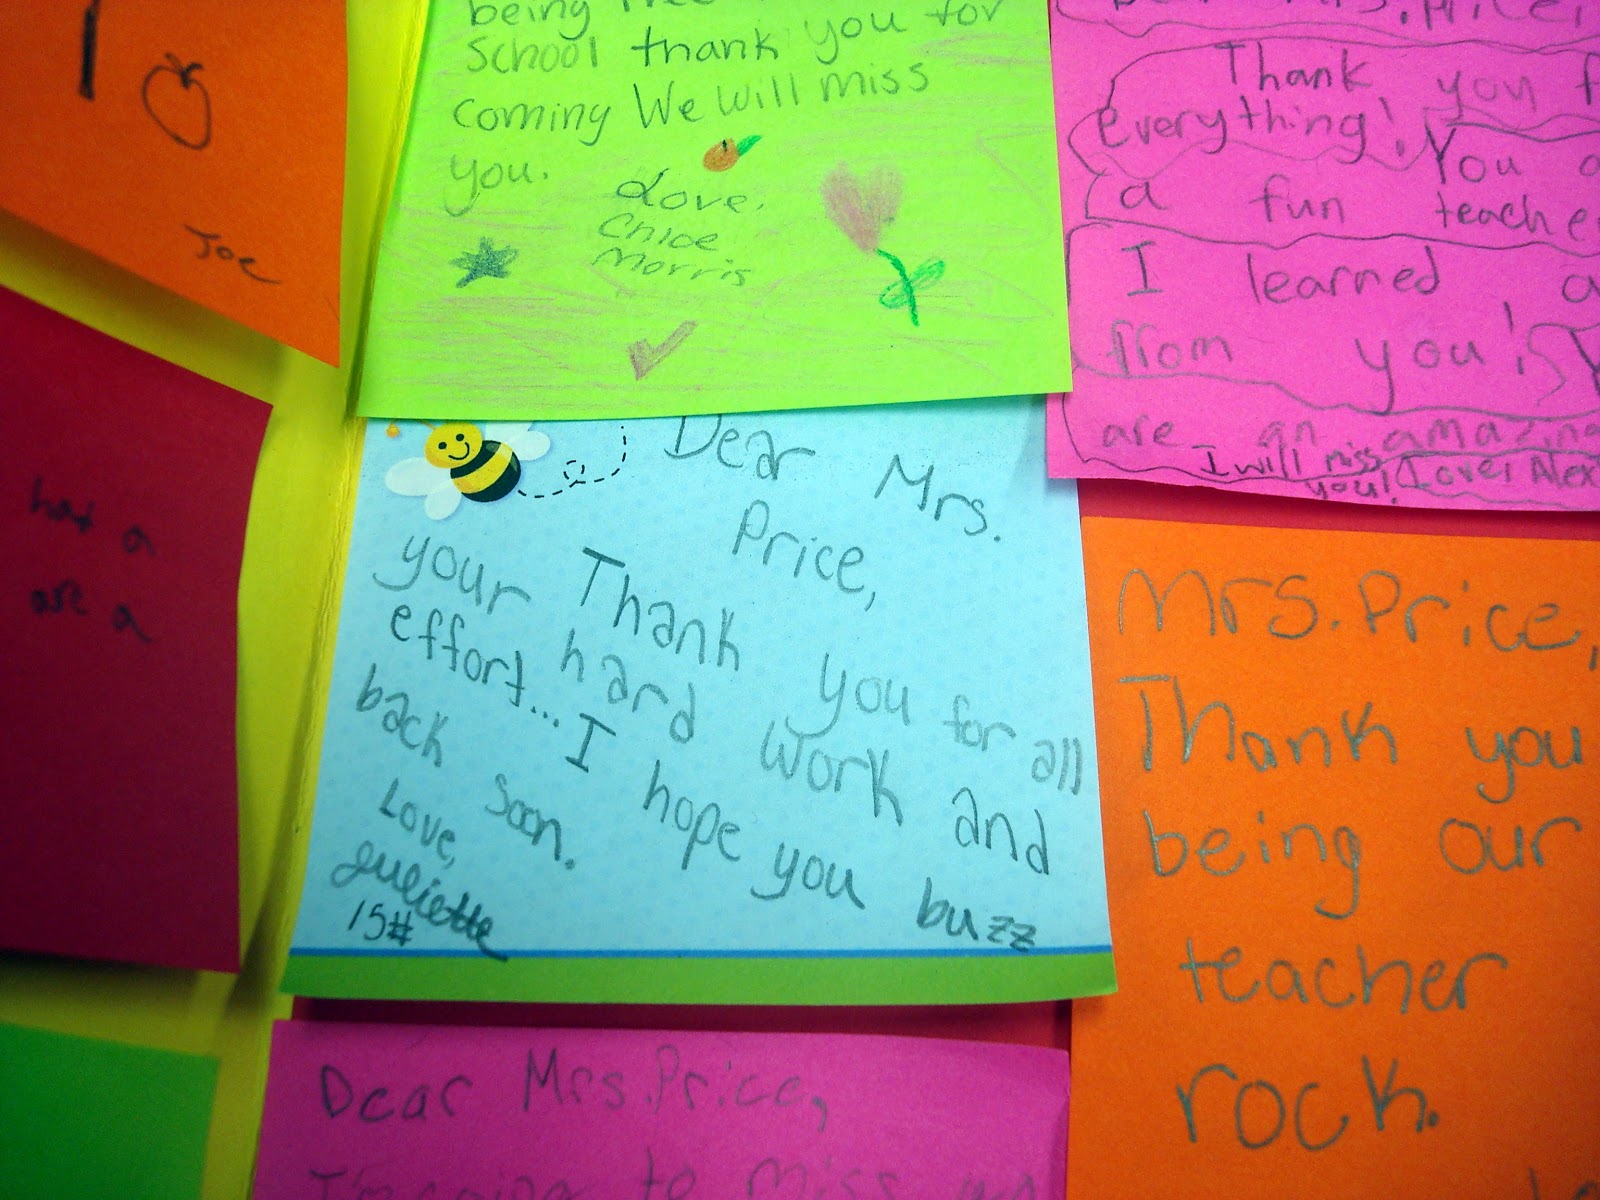 Joe
hat a
are a
being free
School thank you for
coming We will miss
you.
Love,
Chloe
Morris
Mrs. Price,
Thank you f
everything! You a
a fun teache
I learned a
from you! Y
are an amazing
I will miss
you! Love, Alex
Dear Mrs.
Price,
Thank you for all
your hard work and
effort... I hope you buzz
back soon.
Love,
Juliette
15#
Mrs. Price,
Thank you
being our
teacher
rock.
Dear Mrs. Price,
I'm going to miss